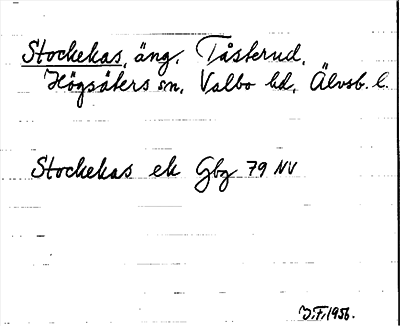 Stockekas, äng. Tåsterud,
Högsäters sn, Valbo hd, Älvsb. l.
Stockekas ek Gbg 79 NV
J.F. 1956.